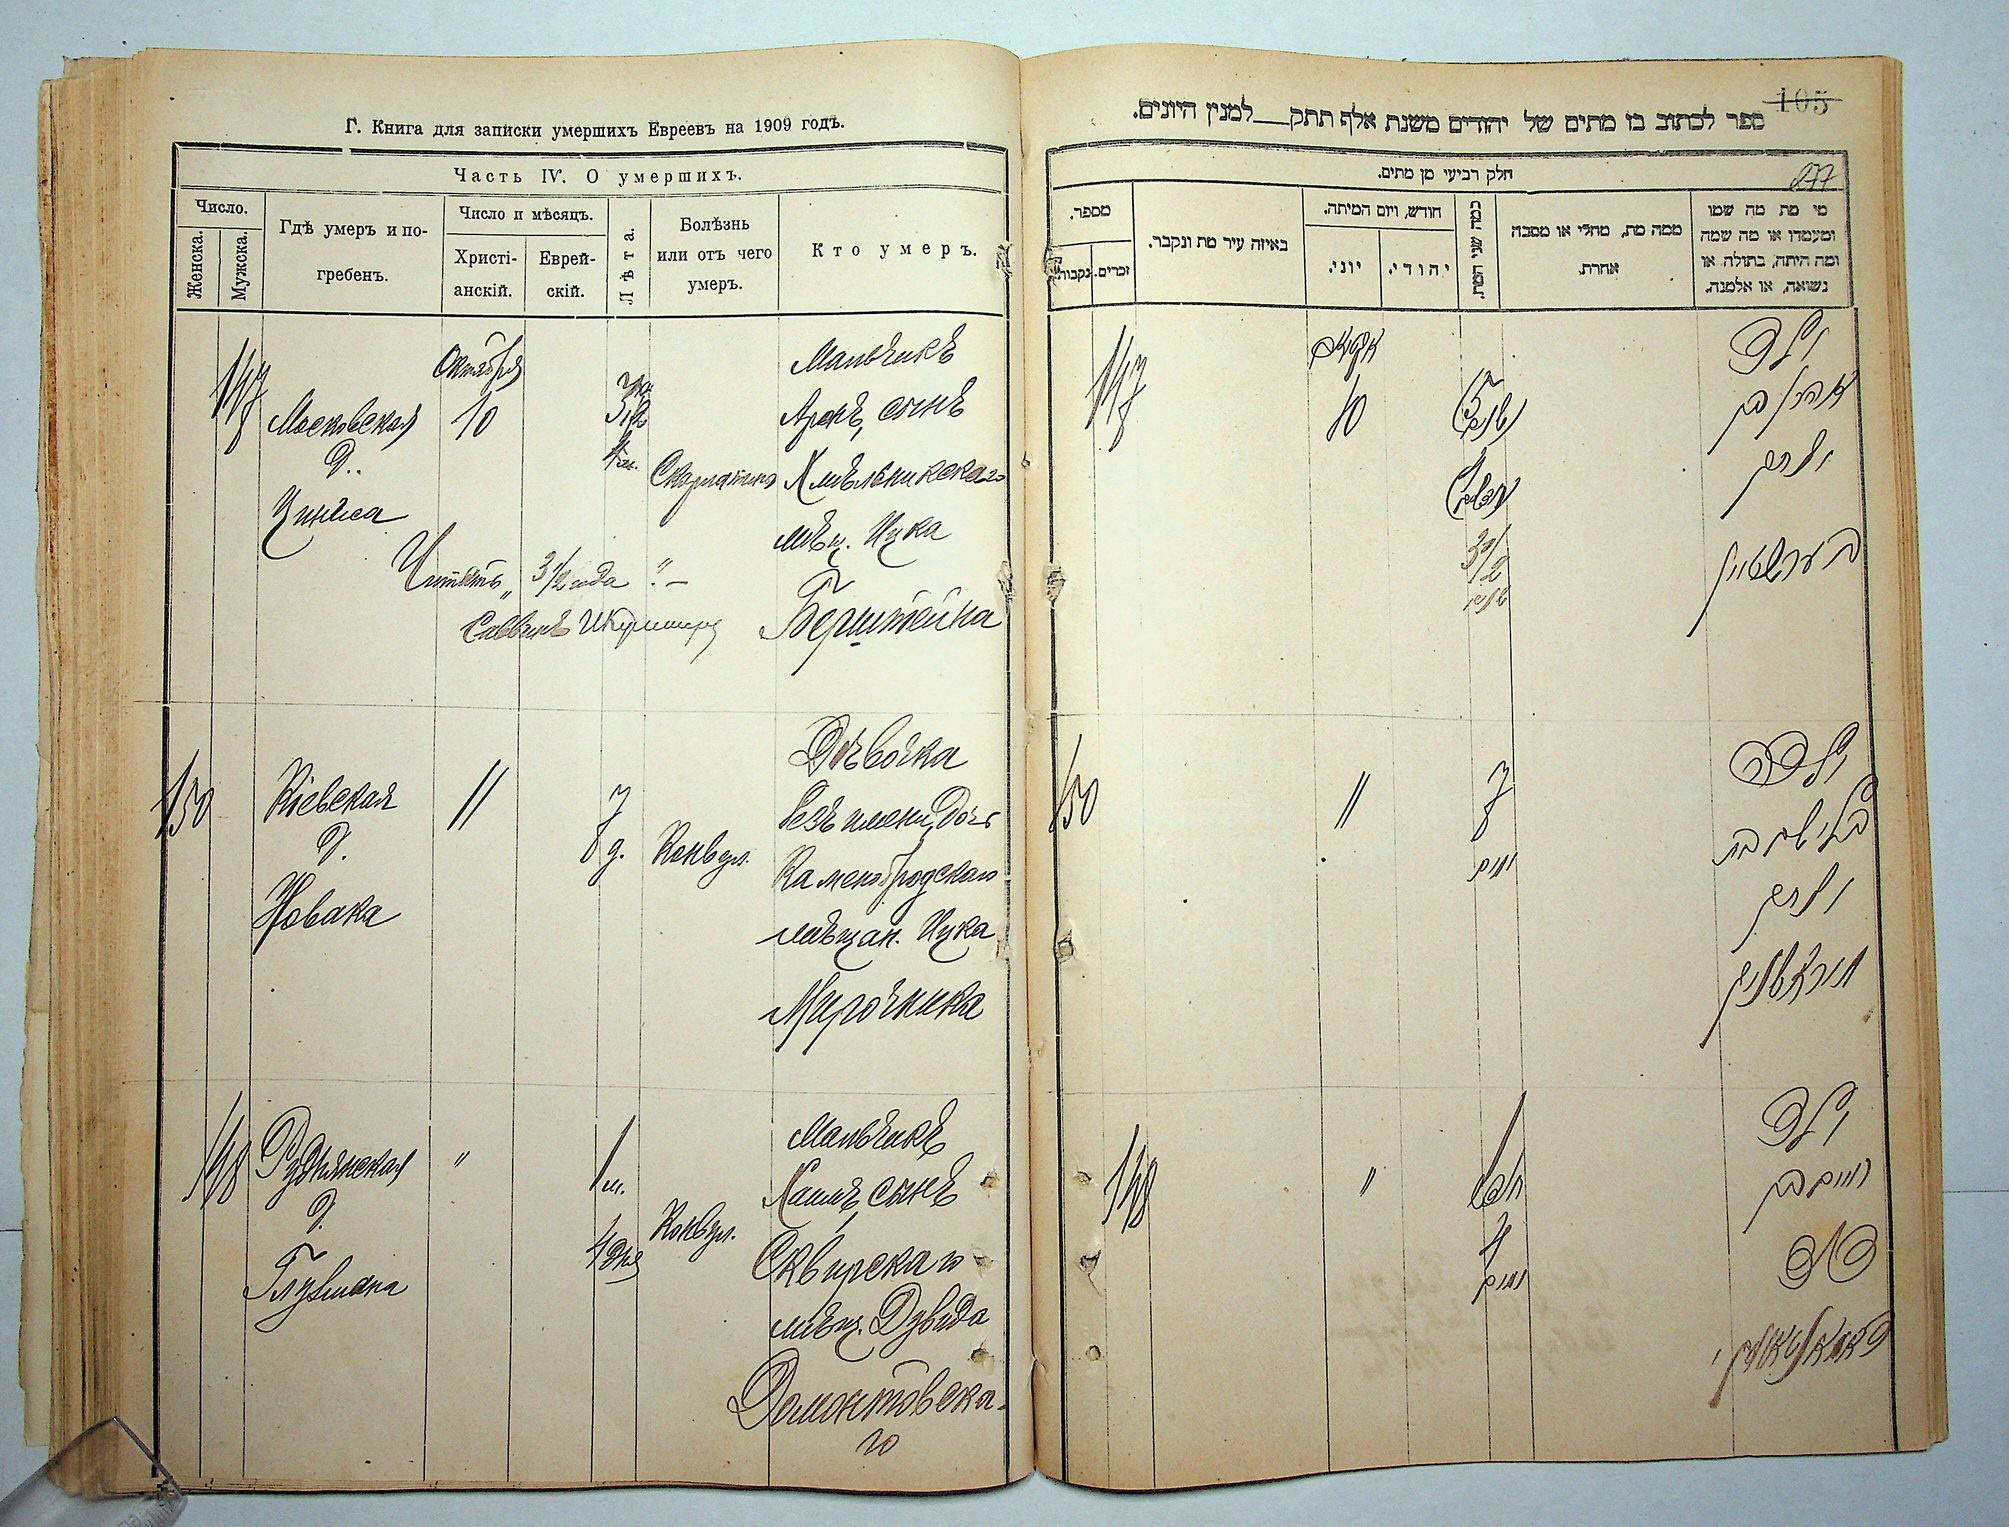 Г. Книга для записки умершихъ Евреевъ на 1909 годъ.
Часть IV. О умершихъ.
Число.
Женска.
Мужска.
Гдѣ умеръ и по-
гребенъ.
Число и мѣсяцъ.
Христі-
анскій.
Еврей-
скій.
Лѣта.
Болѣзнь
или отъ чего
умеръ.
Кто умеръ.
147
Московская
д.
Октября
10
4 м.
Скарлатина
Мальчикъ
Аронъ, сынъ
Хмѣльникскаго
мѣщ. Ицка
Берштейна
Читать „ 3 1/2 года "–
150
Кіевская
д.
Новака
11
7
д.
Конвул.
Дѣвочка
безъ имени, дочь
Каменобродскаго
мѣщан. Ицка
Мирочника
148
Руднянская
д.
Глузмана
"
1 м.
4 дня
Конвул.
Мальчикъ
Хаимъ, сынъ
Сквирскаго
мѣщ. Дувида
Домонтовска-
го
105
ספר לכתוב בו מתים של יהודים משנת אלף תתק__למנין היונים.
חלק רביעי מן מתים.
מספר.
נקבות.
זכרים.
באיזה עיר מת ונקבר.
חודש, ויום המיתה.
יוני.
יהודי.
כמה שני המת.
ממה מת, מחלי או מסבה
אחרת.
מי מת מה שמו
ומעמדו או מה שמה
ומה היתה, בתולה או
נשואה, או אלמנה.
147
10
3
שנים
4
3 1/2
שנים
ילד
אהרן בן
יצחק
בערשטיין
150
11
7
ימים
ילדה
בלי שם בת
יצחק
מיראטשניק
148
"
1
חדש
4
ימים
ילד
חיים בן
דוד